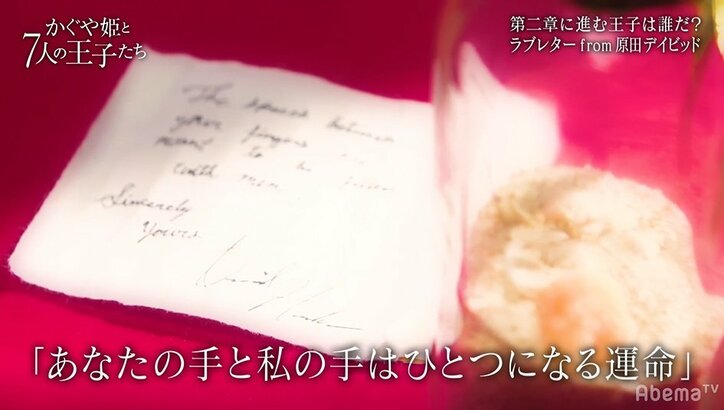 かぐや姫と
7人の王子たち
第二章に進む王子は誰だ?
ラブレターfrom原田デイビッド
The spaces between
your fingers are
meant to be
with mine.
Sincerely
Yours
「あなたの手と私の手はひとつになる運命」
AbemaTV